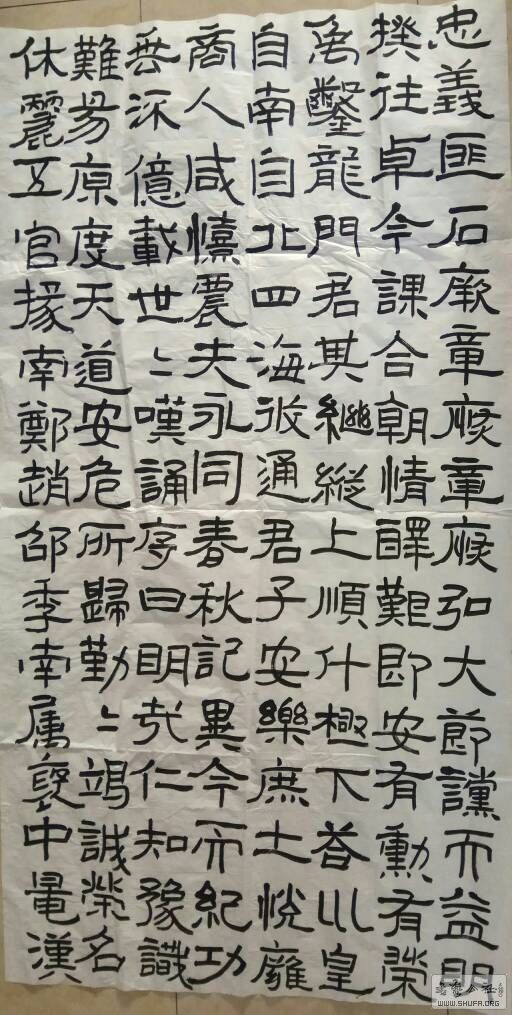 忠義匪石厥章厥章厥弘大節讜而益明
揆往卓今謀合朝情醳艱即安有勳有榮
禹鑿龍門君其繼縱上順斗極下荅巛皇
自南自北四海攸通君子安樂庶士悅雍
商人咸憘農夫永同春秋記異今而紀功
垂流億載世〻嘆誦序曰明哉仁知豫識
難易原度天道安危所歸勤〻竭誠榮名
休麗五官掾南鄭趙邵季南属褒中晁漢
WWW.SHUFA.ORG